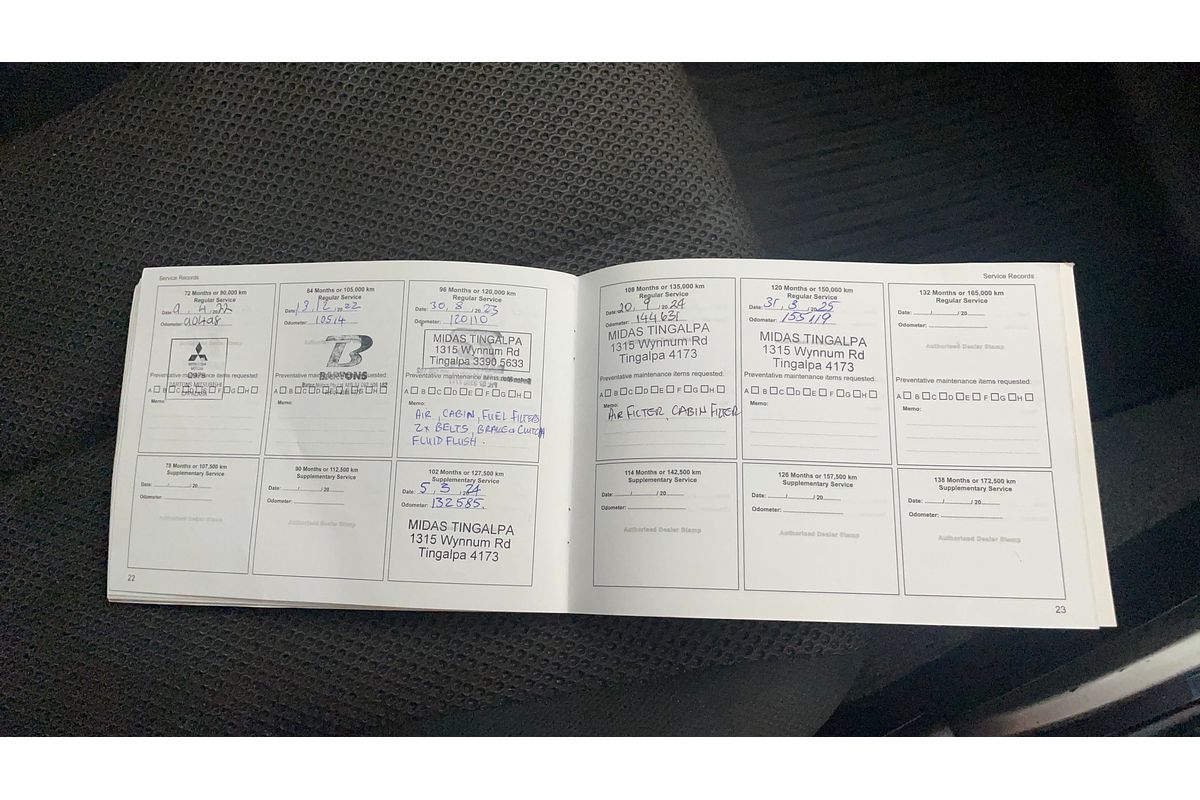 Service Records
72 Months or 90,000 km
Regular Service
Date: 9 / 4 / 2022
Odometer: 90498
C978
BARTONS MITSUBISHI
CAPALABA
Preventative maintenance items requested:
A B C D E F G H
Memo:
84 Months or 105,000 km
Regular Service
Date: 13 / 12 / 2022
Odometer: 10514
B
BARTONS
Preventative maintenance items requested:
A B C D E F G H
Memo:
96 Months or 120,000 km
Regular Service
Date: 30 / 8 / 2023
Odometer: 120110
MIDAS TINGALPA
1315 Wynnum Rd
Tingalpa 3390 5633
Preventative maintenance items requested:
A B C D E F G H
Memo:
AIR, CABIN, FUEL FILTERS
2x BELTS, BRAKE & CLUTCH
FLUID FLUSH.
78 Months or 107,500 km
Supplementary Service
Date: / / 20
Odometer:
Authorised Dealer Stamp
90 Months or 112,500 km
Supplementary Service
Date: / / 20
Odometer:
Authorised Dealer Stamp
102 Months or 127,500 km
Supplementary Service
Date: 5 / 3 / 2024
Odometer: 132585.
MIDAS TINGALPA
1315 Wynnum Rd
Tingalpa 4173
22
Service Records
108 Months or 135,000 km
Regular Service
Date: 20 / 9 / 2024
Odometer: 144631
MIDAS TINGALPA
1315 Wynnum Rd
Tingalpa 4173
Preventative maintenance items requested:
A B C D E F G H
Memo:
AIR FILTER, CABIN FILTER
120 Months or 150,000 km
Regular Service
Date: 31 / 3 / 2025
Odometer: 155119
MIDAS TINGALPA
1315 Wynnum Rd
Tingalpa 4173
Preventative maintenance items requested:
A B C D E F G H
Memo:
132 Months or 165,000 km
Regular Service
Date: / / 20
Odometer:
Authorised Dealer Stamp
Preventative maintenance items requested:
A B C D E F G H
Memo:
114 Months or 142,500 km
Supplementary Service
Date: / / 20
Odometer:
Authorised Dealer Stamp
126 Months or 157,500 km
Supplementary Service
Date: / / 20
Odometer:
Authorised Dealer Stamp
138 Months or 172,500 km
Supplementary Service
Date: / / 20
Odometer:
Authorised Dealer Stamp
23